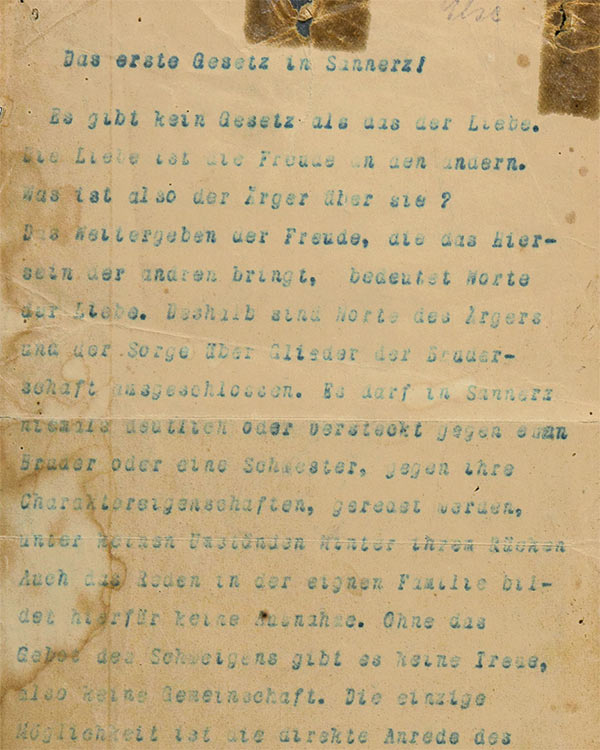 Else
Das erste Gesetz in Sannerz!
Es gibt kein Gesetz als das der Liebe.
Die Liebe ist die Freude an den andern.
Was ist also der Ärger über sie ?
Das Weitergeben der Freude, die das Hier-
sein der andren bringt, bedeutet Worte
der Liebe. Deshalb sind Worte des Ärgers
und der Sorge über Glieder der Bruder-
schaft ausgeschlossen. Es darf in Sannerz
niemals deutlich oder versteckt gegen einen
Bruder oder eine Schwester, gegen ihre
Charaktereigenschaften, geredet werden,
unter keinen Umständen hinter ihrem Rücken
Auch das Reden in der eignen Familie bil-
det hierfür keine Ausnahme. Ohne das
Gebot des Schweigens gibt es keine Treue,
also keine Gemeinschaft. Die einzige
Möglichkeit ist die direkte Anrede des